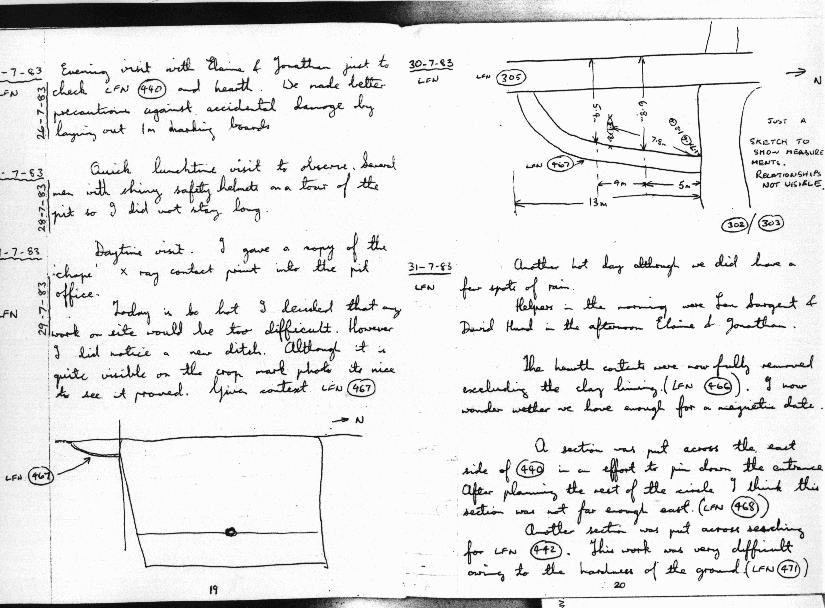 -7-83
Evening visit with Elaine & Jonathan just to
LFN
check LFN 440 and hearth. We made better
26-7-83
precautions against accidental damage by
laying out 1m marking boards
-7-83
Quick lunchtime visit to observe. Several
men with shiny safety helmets on a tour of the
28-7-83
pit so I did not stay long.
-7-83
Daytime visit. I gave a copy of the
'chape' x ray contact print into the pit
office.
29-7-83
LFN
Today is so hot I decided that any
work on site would be too difficult. However
I did notice a new ditch. Although it is
quite visible on the crop mark photo its nice
to see it proved. Given context LFN 467
N
LFN 467
19
30-7-83
LFN
LFN 305
N
5.4
6.8
7.8m
LFN 467
9m
5m
13m
302/303
JUST A
SKETCH TO
SHOW MEASURE
MENTS.
RELATIONSHIPS
NOT VISIBLE
31-7-83
LFN
Another hot day although we did have a
few spots of rain.
Helpers in the morning were Ian Sargent &
David Hurd in the afternoon Elaine & Jonathan.
The hearth contents were now fully removed
excluding the clay lining. (LFN 466). I now
wonder wether we have enough for a magnetic date.
A section was put across the east
side of 440 in an effort to pin down the entrance
After planning the rest of the circle I think this
section was not far enough east. (LFN 468)
Another section was put across searching
for LFN 442. This work was very difficult
owing to the hardness of the ground (LFN 471)
20